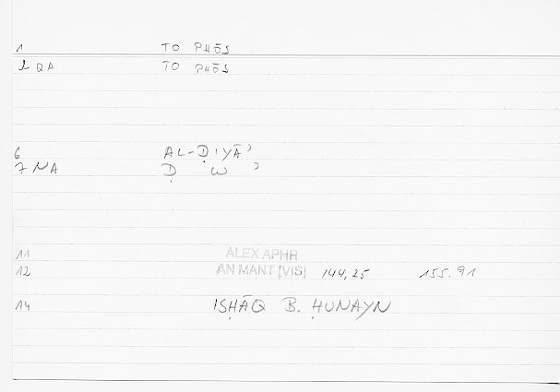 1 TO PHŌS
2 QA TO PHŌS
6 AL-ḌIYĀʾ
7 NA Ḍ W ʾ
11 ALEX APHR
12 AN MANT [VIS] 144,25 155.91
14 ISḤĀQ B. ḤUNAYN